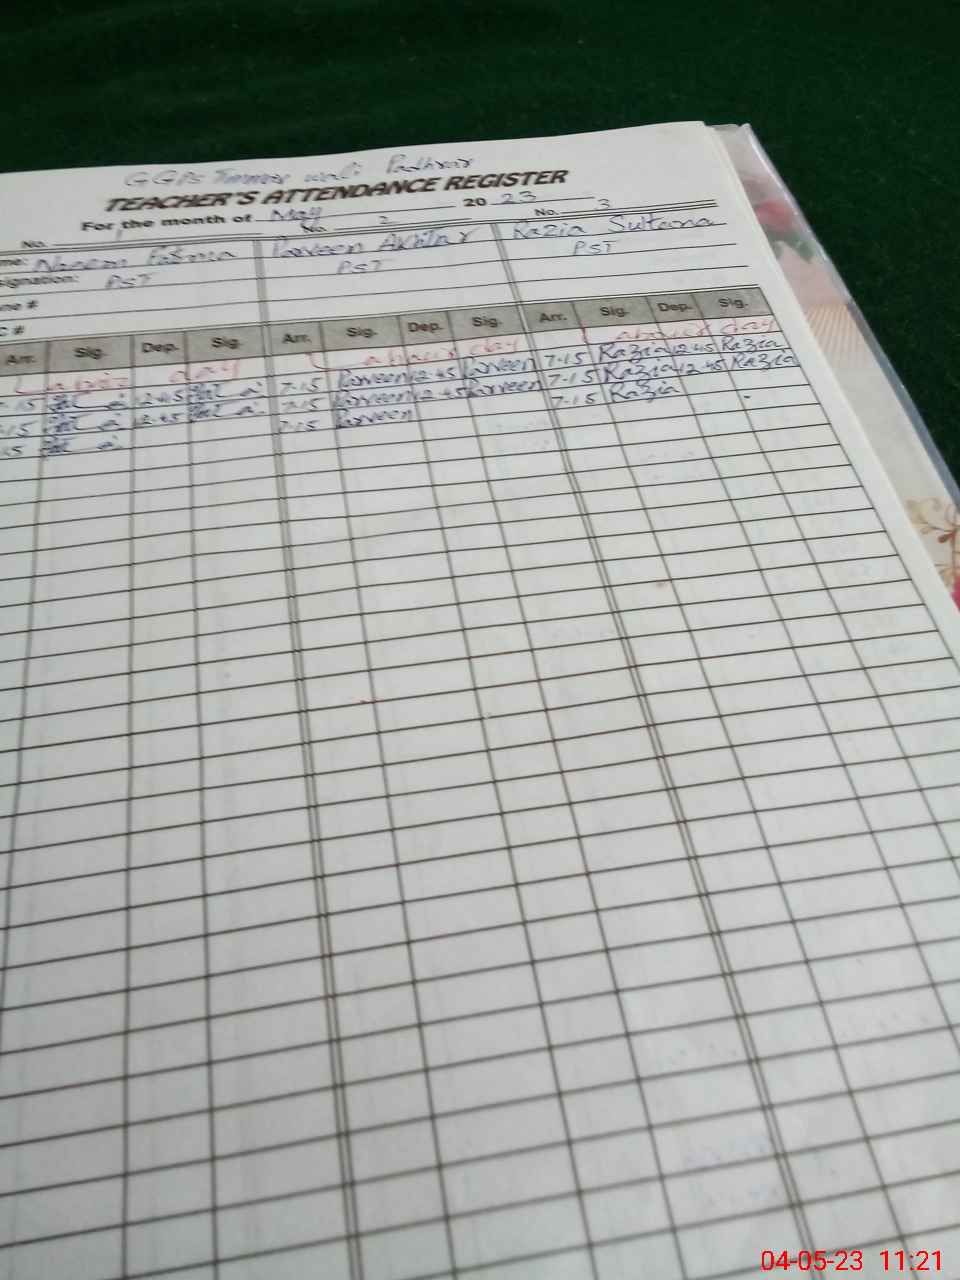 GGPS wali Padhrar
TEACHER'S ATTENDANCE REGISTER
For the month of May 2023
No. 1 No. 2 No. 3
me: Naeem Fatima Parveen Akhtar Razia Sultana
signation: PST PST PST
ne #
C #
Arr. Sig. Dep. Sig. Arr. Sig. Dep. Sig. Arr. Sig. Dep. Sig.
day day day
7-15 12-45 7-15 Parveen 12-45 Parveen 7-15 Razia 12-45 Razia
-15 12-45 7-15 Parveen 12-45 Parveen 7-15 Razia 12-45 Razia
7-15 Parveen 7-15 Razia
04-05-23 11:21